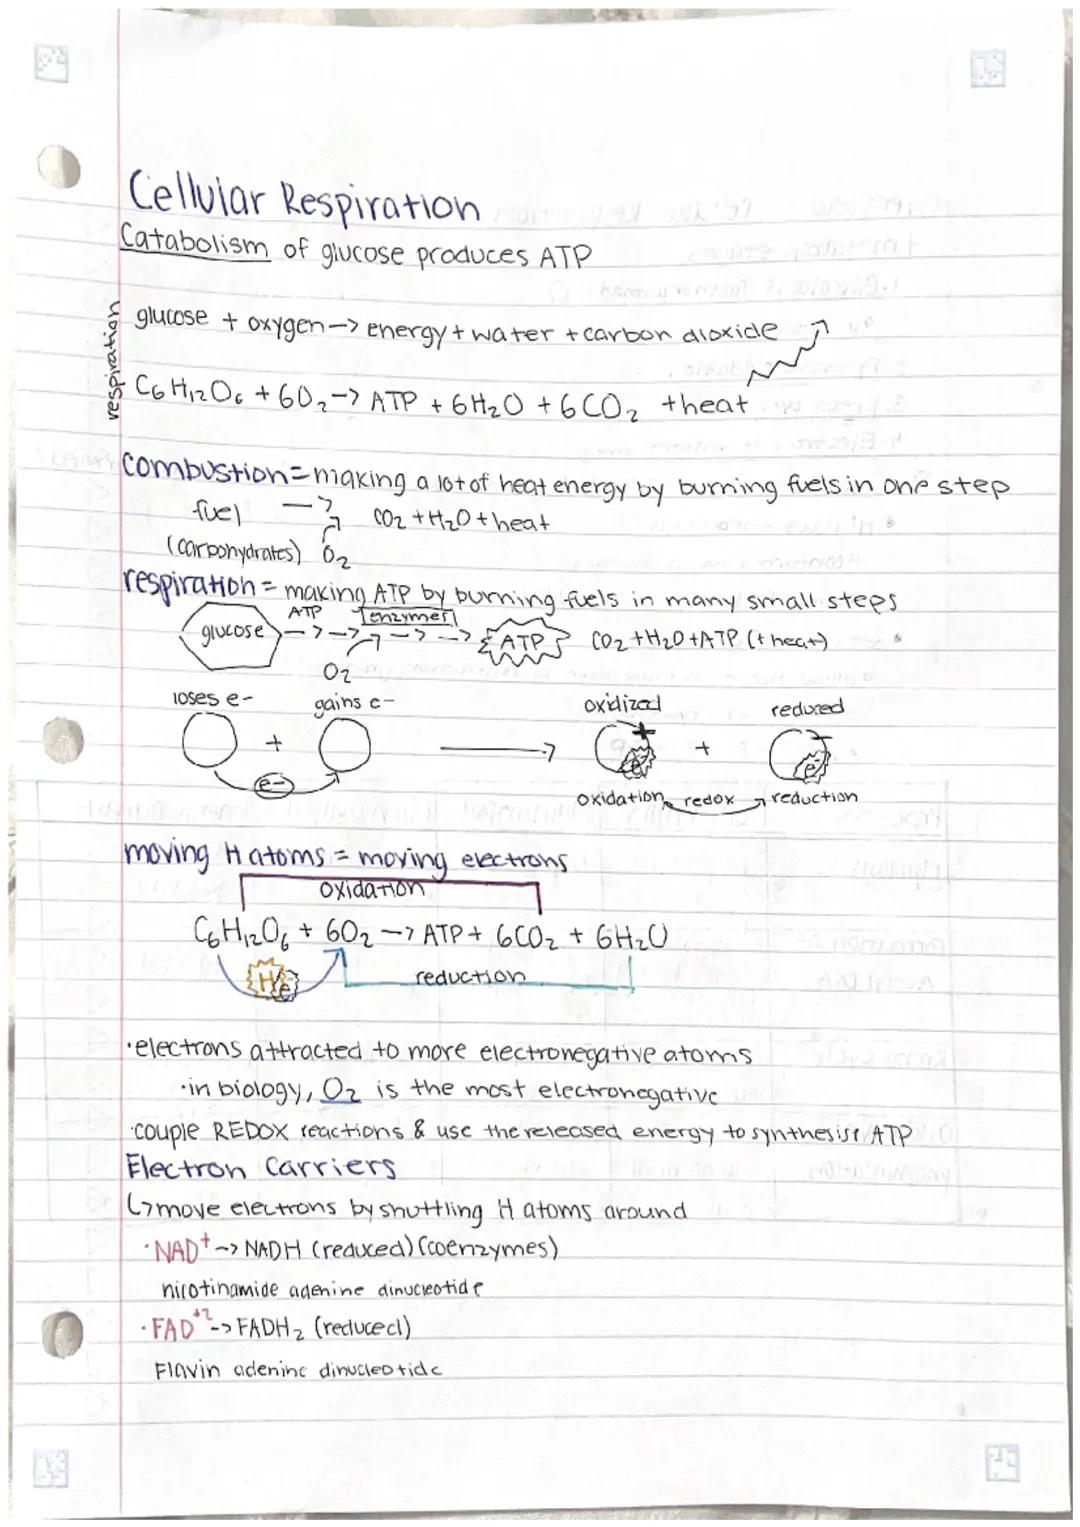 Cellular Respiration
Catabolism of glucose produces ATP
respiration
glucose + oxygen -> energy + water + carbon dioxide
C6H12O6 + 6O2 -> ATP + 6H2O + 6CO2 + heat
combustion = making a lot of heat energy by burning fuels in one step
fuel -> CO2 + H2O + heat
(carbohydrates) O2
respiration = making ATP by burning fuels in many small steps
ATP enzymes
glucose -> -> -> -> ATP CO2 + H2O + ATP (+ heat)
O2
loses e- gains e- oxidized reduced
+ -> + + -
e- e- e-
oxidation redox reduction
moving H atoms = moving electrons
oxidation
C6H12O6 + 6O2 -> ATP + 6CO2 + 6H2O
H e- reduction
·electrons attracted to more electronegative atoms
·in biology, O2 is the most electronegative
·couple REDOX reactions & use the released energy to synthesise ATP
Electron Carriers
↳move electrons by shuttling H atoms around
·NAD+ -> NADH (reduced) (coenzymes)
nicotinamide adenine dinucleotide
·FAD+2 -> FADH2 (reduced)
Flavin adenine dinucleotide